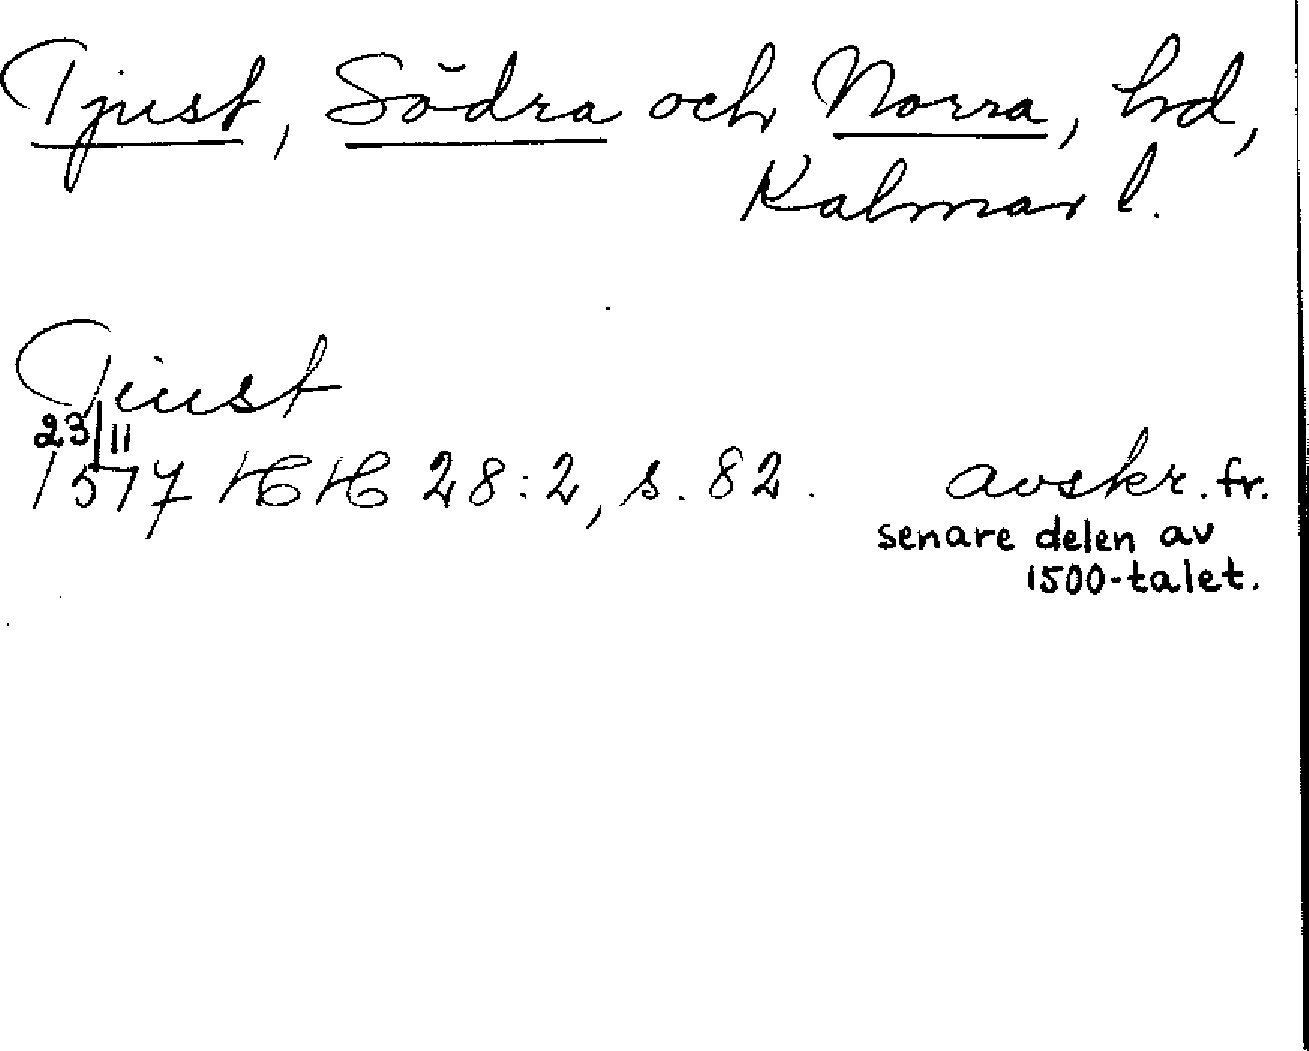 Tjust, Södra och Norra, hd,
Kalmar l.
Tiust
23/11
1577 HH 28:2, s. 82. avskr. fr.
senare delen av
1500-talet.